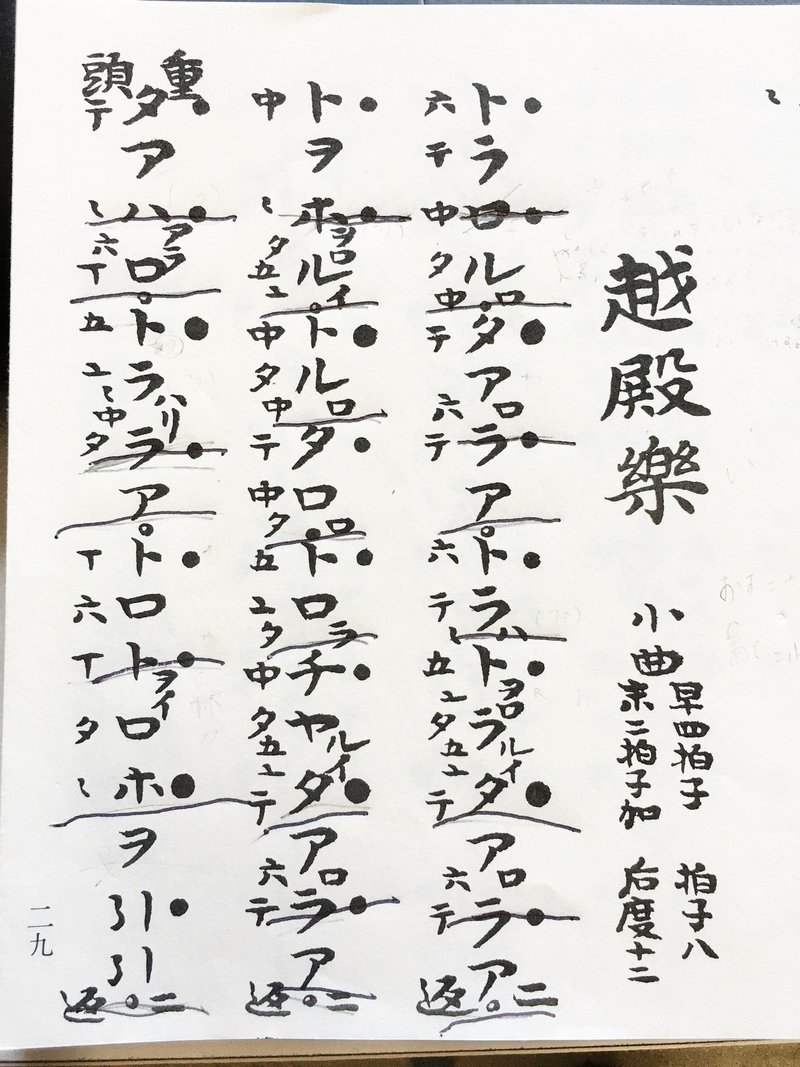 越殿樂
小曲 早四拍子 拍子八
末二拍子加 后度十二
トラロルロタアロラアトラハトヲロラルイタアロラア
六テ中タ中テ六テ六テ五タ五テ六テ
二返
トヲホヲロルイトルロタロロトロラチヤルイタアロラア
中タ五中タ中テ中タ五タ中タ五テ六テ
二返
重頭
タアハアラロトラハリラアトロトヲイロホヲ引引
テ六丁五中タ丁六丁タ
二返
二九